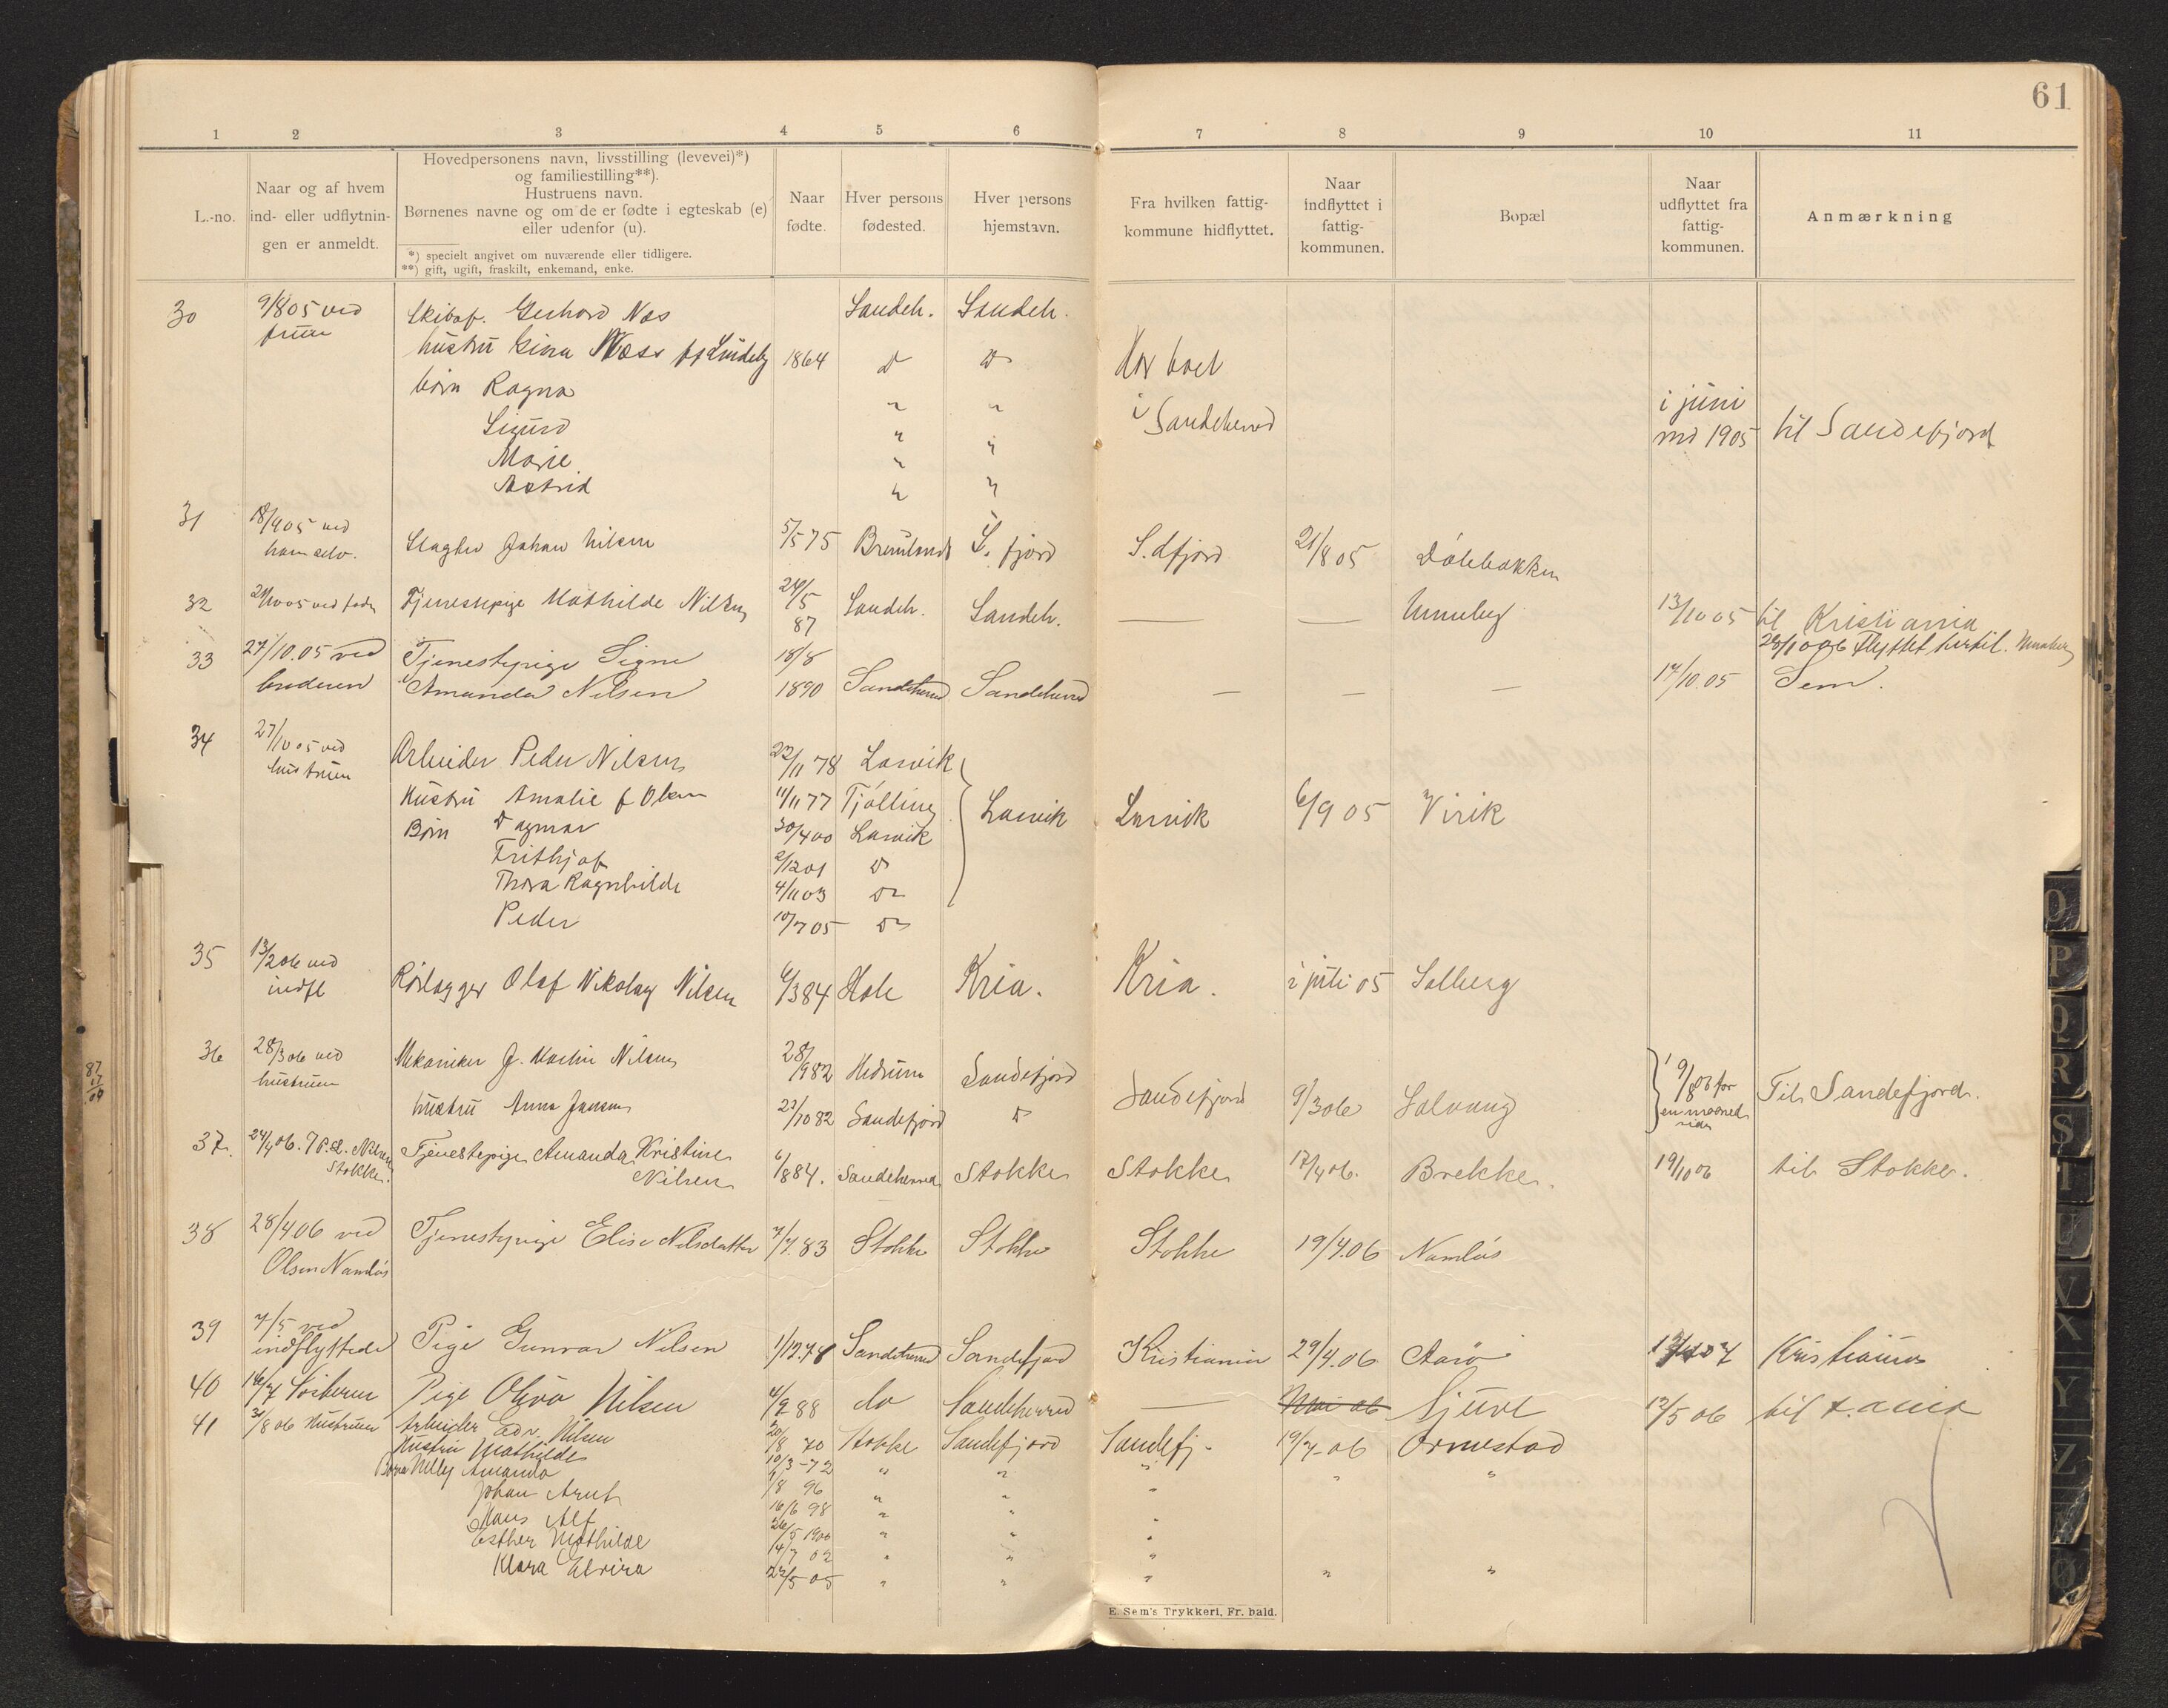 61
1 2 3 4 5 6 7 8 9 10 11
L.-no.
Naar og af hvem
ind- eller udflytnin-
gen er anmeldt.
Hovedpersonens navn, livsstilling (levevei)*)
og familiestilling**).
Hustruens navn.
Børnenes navne og om de er fødte i egteskab (e)
eller udenfor (u).
*) specielt angivet om nuværende eller tidligere.
**) gift, ugift, fraskilt, enkemand, enke.
Naar
fødte.
Hver persons
fødested.
Hver persons
hjemstavn.
Fra hvilken fattig-
kommune hidflyttet.
Naar
indflyttet i
fattig-
kommunen.
Bopæl
Naar
udflyttet fra
fattig-
kommunen.
Anmærkning
30 9/8 05 ved Skibsf. Gerhard Næs Sandeh. Sandeh.
fruen
hustru Gina Næss 1864 D D Har boet
børn Ragna " " i Sandeherred i juni
Sigurd " " md 1905 til Sandefjord
Marie " "
Astrid " "
31 18/9 05 ved
ham selv. Slagter Johan Nilsen 5/5 75 S. fjord S.dfjord 21/8 05 Dölebakken
32 ved fader Tjenestepige Mathilde Nilsen 24/5
87 Sandeh. Sandeh. — — Unneberg 13/10 05 til Kristiania
28/10 06 Flyttet hertil. Unneberg
33 27/10.05 ved Tjenestepige Signe 18/8
broderen Amanda Nilsen 1890 Sandeherred Sandeherred — — — 14/10.05 Sem.
34 27/10 05 ved
hustruen Arbeider Peder Nilsen 22/11 78 Larvik
Hustru Amalie f Olsen 11/11 77 Tjølling Larvik Larvik 6/9 05 Virik
Børn Dagmar 30/4 00 Larvik
Frithjof 2/12 01 D
Thora Ragnhilde 4/11 03 D
Peder 10/7 05 D
35 13/2 06 ved
indfl Rørlægger Olaf Nikolay Nilsen 6/3 84 Hole Kria. Kria. i juli 05 Solberg
36 28/3 06 ved
hustruen Mekaniker J. Martin Nilsen 28/9 82 Hedrum Sandefjord Sandefjord 9/3 06 Solvang 9/8 06 for
en maaned
siden Til Sandefjord.
hustru Anna Jansen 23/10 82 Sandefjord D
37. 24/4 06. Nilsen
Stokke. Tjenestepige Amanda Kristine
Nilsen 6/8 84. Sandeherred Stokke Stokke 17/4 06. Brekke. 19/10 06 til Stokke.
38 28/4 06 ved
Olsen Namløs Tjenestepige Elise Nilsdatter 7/7. 83 Stokke Stokke Stokke 19/4.06 Namløs
39 7/5 ved
indflyttede Pige Gunvor Nilsen 1/12.78 Sandeherred Sandefjord Kristiania 29/4.06 Aarø Kristiania
40 16/7 Pige Olga Nilsen 4/9 88 do Sandeherred — Mai 06 Gjure 12/5 06 til
41 31/8 06 Hustruen Arbeider Edv. Nilsen 20/8 70 Stokke Sandefjord Sandefj. 19/7-06 Ormestad
Hustru Mathilde 10/3-72 " " " " "
Børn Nelly Amanda 9/8 96 " " "
Johan Arnt 16/6 98 " " "
Hans Alf 26/5 1900 " " "
Esther Mathilde 14/7 02 " " "
Klara Elvira 22/5 05 " " " " "
E. Sem's Trykkeri, Fr. hald.
O
P
Q
R
S
T
U
V
X
Y
Z
Æ
Ø